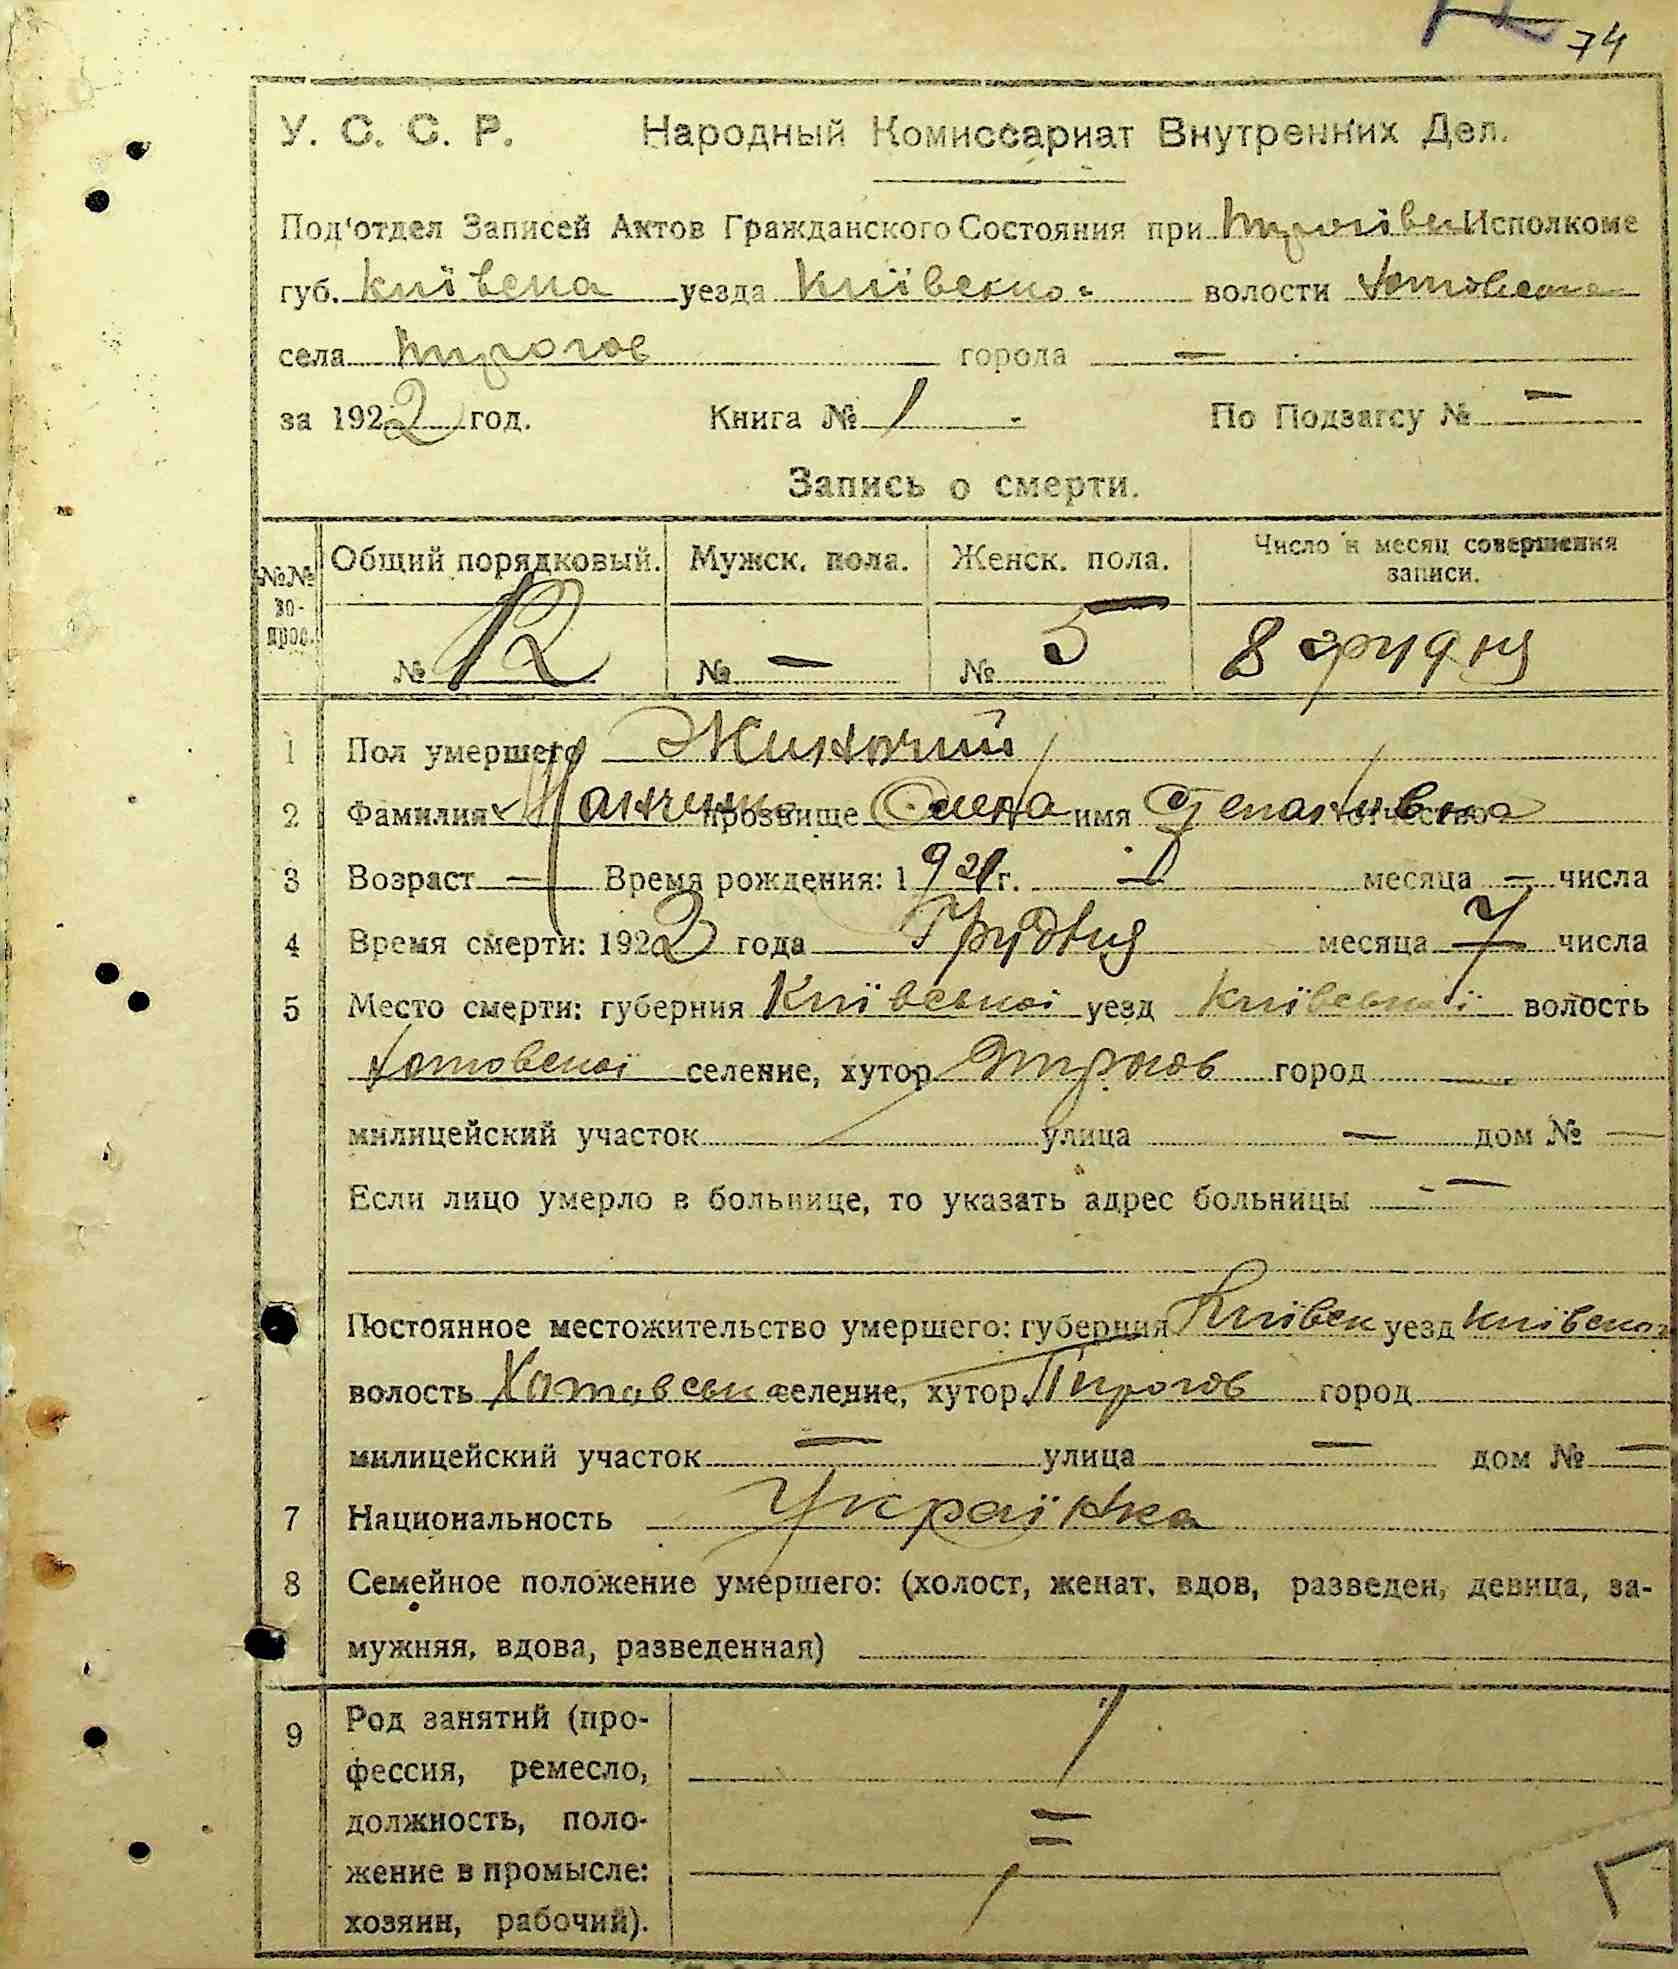 74
У. С. С. Р. Народный Комиссариат Внутренних Дел.
Под'отдел Записей Актов Гражданского Состояния при Исполкоме
губ. Київська уезда Київсько. волости Хотовська
села Пирогов города —
за 1922 год. Книга № 1 - По Подзагсу № —
Запись о смерти.
№№ во-прос. Общий порядковый. Мужск. пола. Женск. пола. Число и месяц совершения записи.
№ 12 № — № 5 8 грудня
1 Пол умершего Жиночий
2 Фамилия прозвище Олена имя Степановна отчество
3 Возраст — Время рождения: 1921 г. — месяца — числа
4 Время смерти: 1922 года Грудня месяца 7 числа
5 Место смерти: губерния Київської уезд Київської волость
Хотовської селение, хутор Пирогов город
милицейский участок улица — дом № —
Если лицо умерло в больнице, то указать адрес больницы —
Постоянное местожительство умершего: губерния Київськ уезд Київської
волость Хотовська селение, хутор Пирогов город
милицейский участок — улица — дом № —
7 Национальность Українка
8 Семейное положение умершего: (холост, женат, вдов, разведен, девица, за-
мужняя, вдова, разведенная)
9 Род занятий (про-
фессия, ремесло,
должность, поло-
жение в промысле:
хозяин, рабочий).